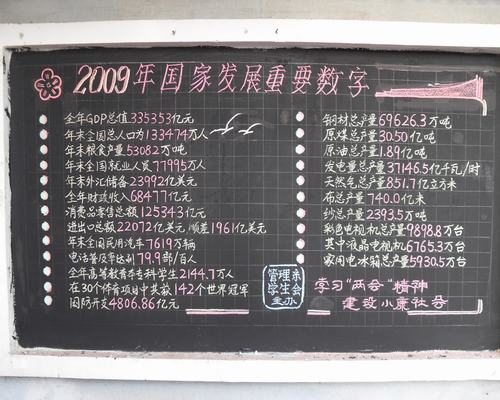 2009年国家发展重要数字
全年GDP总值335353亿元
年末全国总人口为133474万人
年末粮食产量53082万吨
年末全国就业人员77995万人
年末外汇储备23992亿美元
全年财政收入68477亿元
消费品零售总额125343亿元
进出口总额22072亿美元 顺差1961亿美元
年末全国民用汽车7619万辆
电话普及率达到79.9部/百人
全年高等教育本专科学生2144.7万人
在30个体育项目中共获142个世界冠军
国防开支4806.86亿元
钢材总产量69626.3万吨
原煤总产量30.50亿吨
原油总产量1.89亿吨
发电量总产量37146.5亿千瓦/时
天然气总产量851.7亿立方米
布总产量740.0亿米
纱总产量2393.5万吨
彩色电视机总产量9898.8万台
其中液晶电视机6765.3万台
家用电冰箱总产量5930.5万台
管理系
学生会
主办
学习"两会"精神
建设小康社会